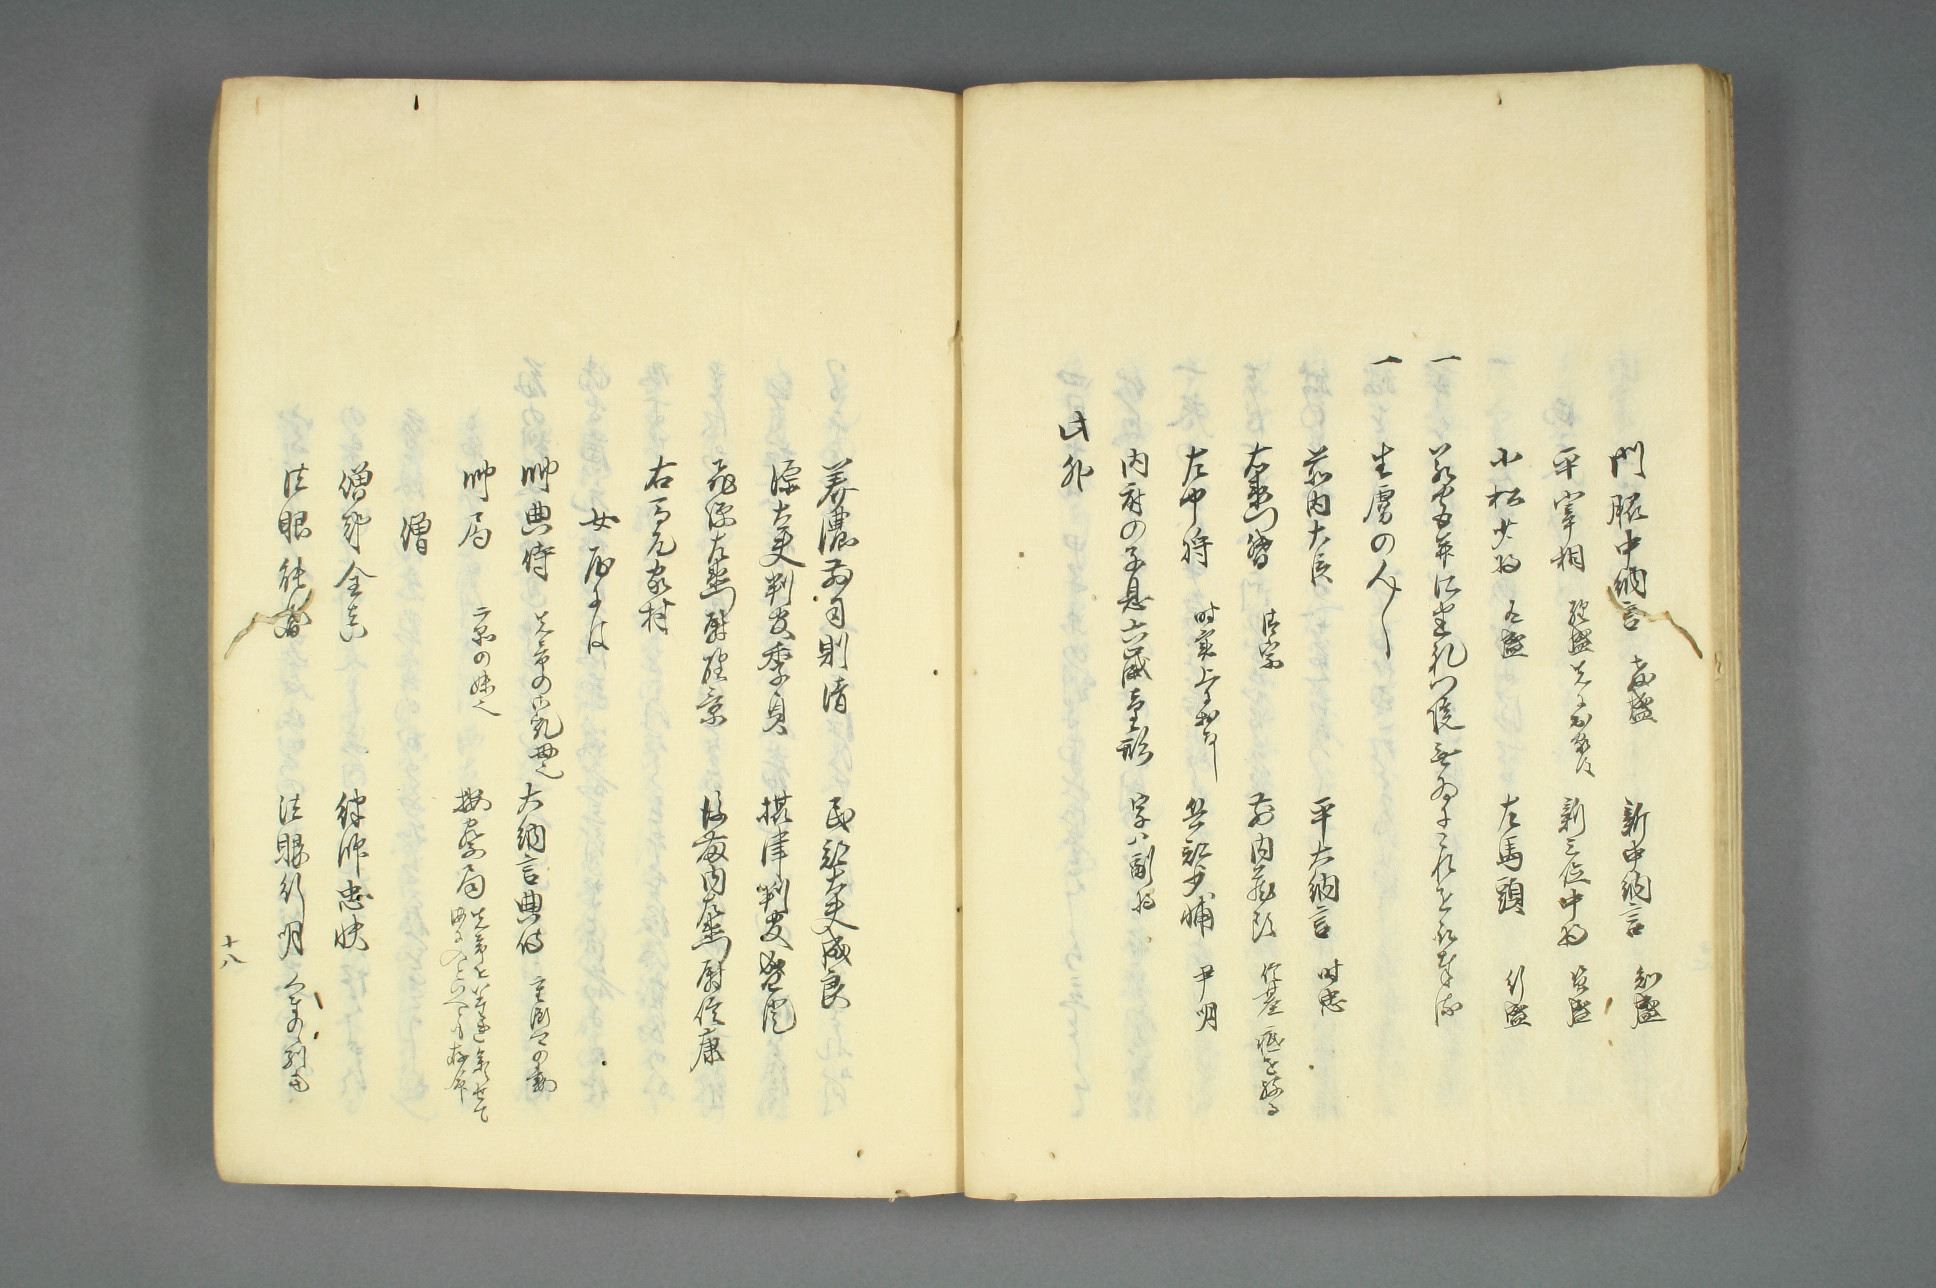 門脇中納言 教盛 新中納言 知盛
平宰相 経盛 新三位中将 資盛
小松少将 有盛 左馬頭 行盛
一 若宮并に建礼門院
一 生虜の人〱
前内大臣 平大納言 時忠
右衛門督 清宗 前内蔵頭 信基 疵を被る
左中将 時実 上に同し 兵部少輔 尹明
内府の子息六歳童形 字ハ副将
此外
美濃前司則清 民部大夫成良
源大夫判官季貞 摂津判官盛澄
飛騨左衛門尉経景 後藤内左衛門尉信康
右馬允家村
女房にハ
帥典侍 先帝の御乳母也 大納言典侍 重衡卿の妻
帥局 二京の妹也 按察局 先帝を
僧
僧都全真 律師忠快
法眼能円 法眼行明
十八